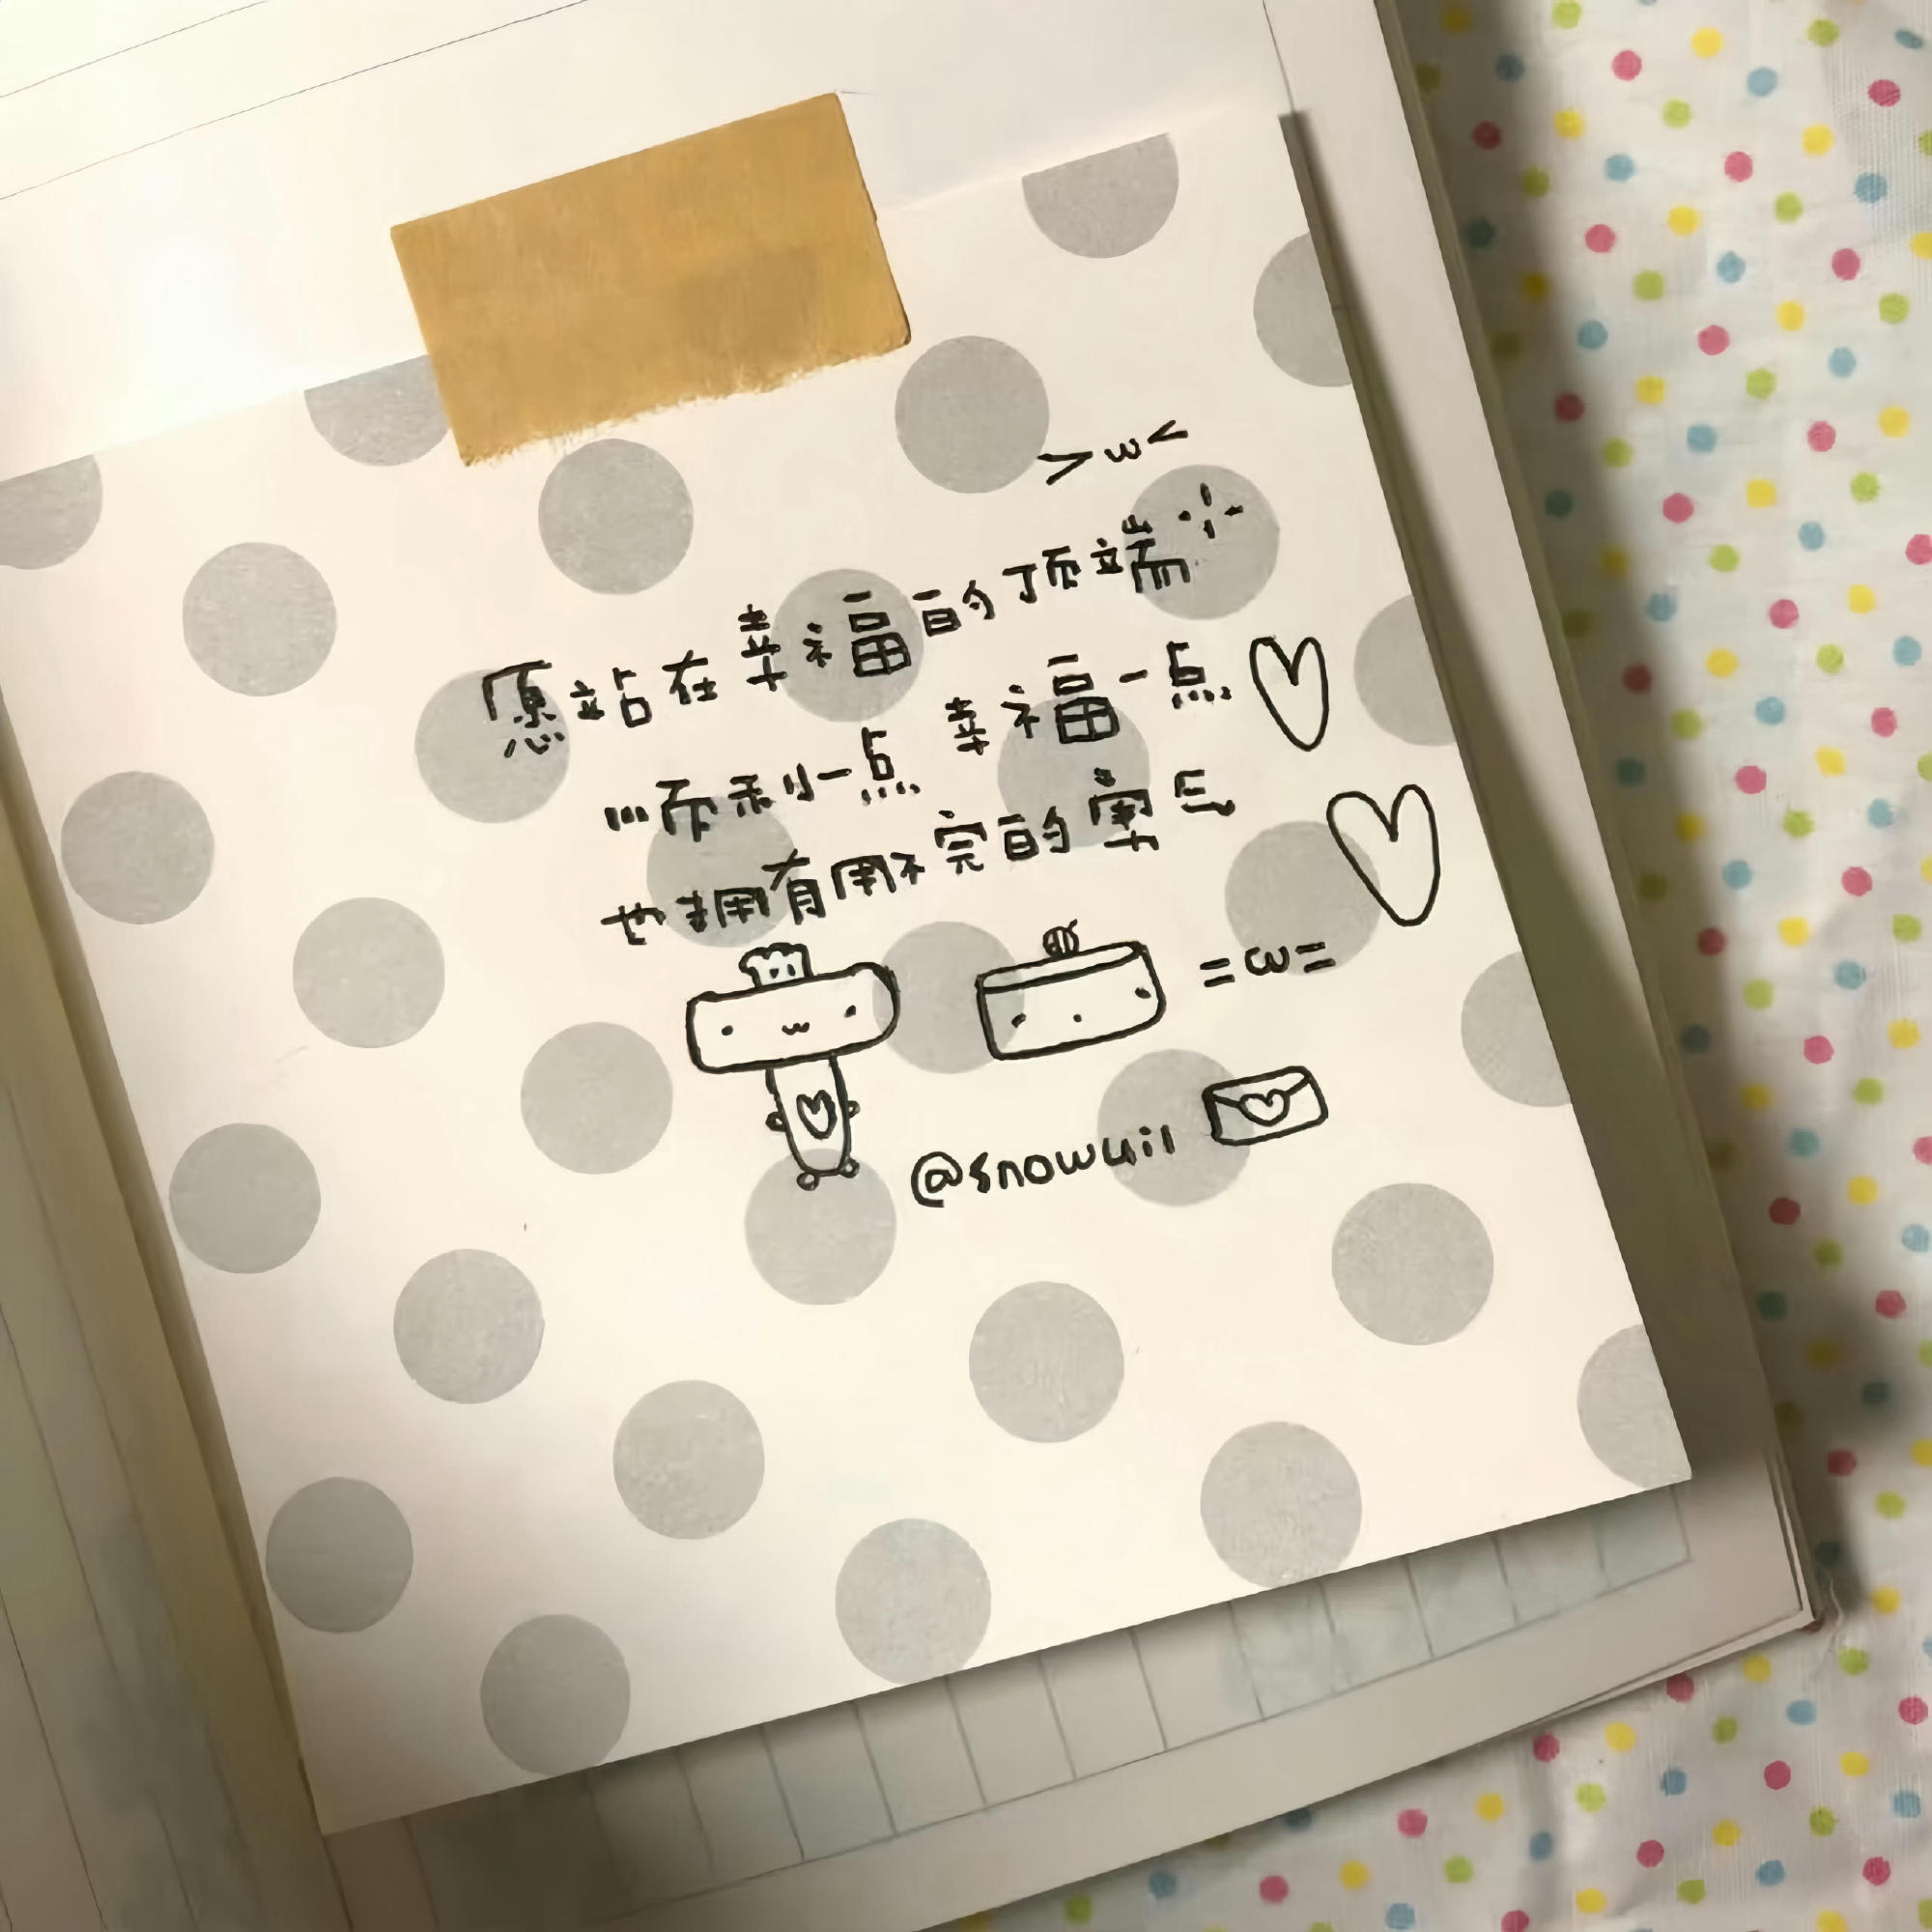 >ω<
愿站在幸福的顶端
顺利一点 幸福一点
也拥有用不完的勇气
=ω=
@snowuil